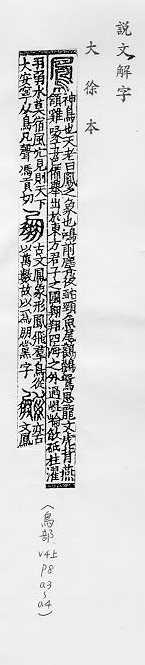 說文解字
大徐本
鳳
神鳥也天老曰鳳之象也鴻前麐後蛇頸魚尾鸛顙鴛思龍文虎背燕
頷雞喙五色備舉出於東方君子之國翱翔四海之外過崐崘飲砥柱濯
羽弱水莫宿風穴見則天下
大安寧从鳥凡聲馮貢切
古文鳳象形鳳飛羣鳥從
以萬數故以為朋黨字
亦古
文鳳
(鳥部 v4上 p8 a3~a4)